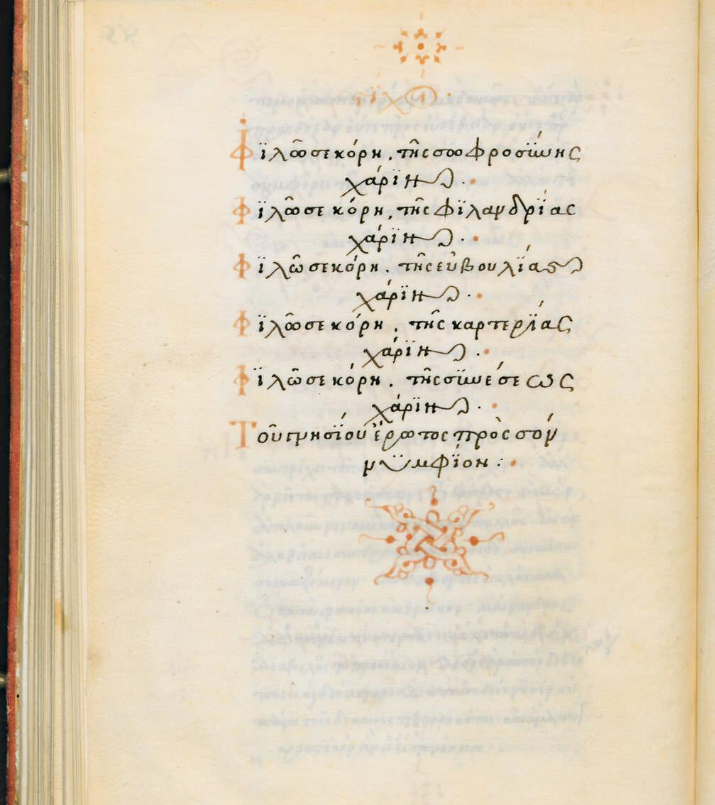 Φϊλῶ σε κόρη, τῆς σωφροσΰνης
χάρϊν.
Φϊλῶ σε κόρη, τῆς φϊλανδρΐας
χάρϊν.
Φϊλῶ σε κόρη. τῆς εὐβουλΐας
χάρϊν.
Φϊλῶ σε κόρη, τῆς καρτερΐας
χάρϊν.
Φϊλῶ σε κόρη. τῆς σϋνέσεως
χάριν.
Τοῦ γνησΐου ἔρωτος πρὸς σὸν
νϋμφΐον: